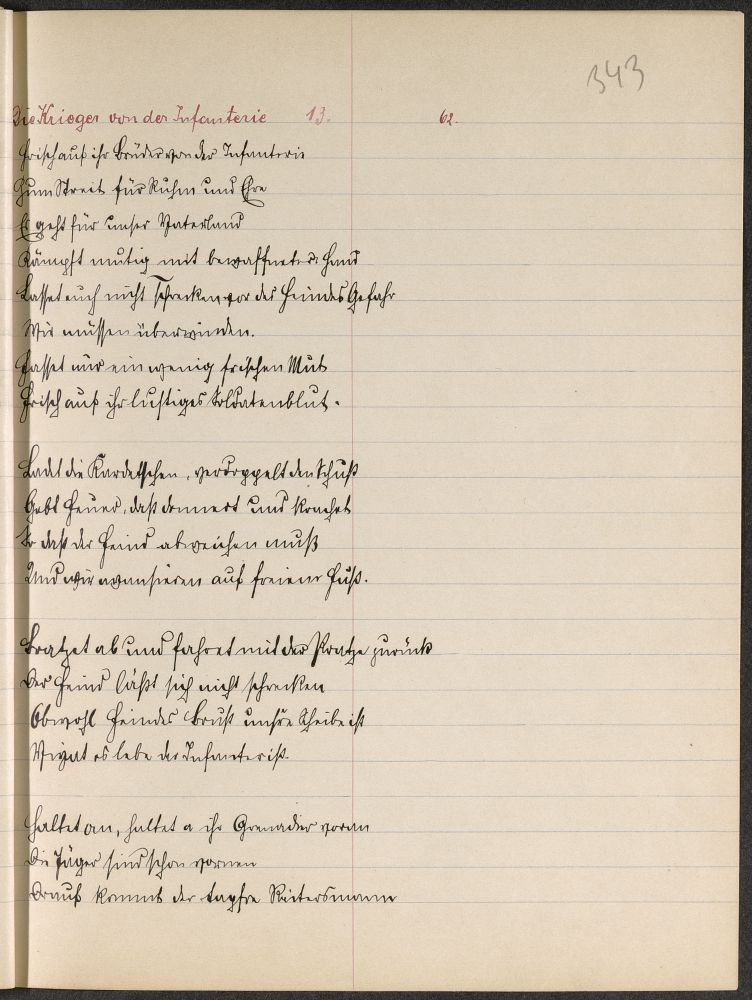 343
Die Krieger von der Infanterie 13. 62.
Frisch auf ihr Brüder von der Infanterie
Zum Streit für Ruhm und Ehre
Es geht für unser Vaterland
Kämpft mutig mit bewaffneter Hand
Lasset euch nicht schrecken vor des Feindes Gefahr
Wir müssen überwinden.
Fasset nur ein wenig frischen Mut
Frisch auf ihr lustiges Soldatenblut.
Ladet die Kardetschen, verdoppelt den Schuß
Gebt Feuer, daß donnert und krachet
So daß der Feind abweichen muß
Und wir avansieren auf freiem Fuß.
Bratzet ab und fahret mit der Pratze zurück
Der Feind läßt sich nicht schrecken
Obwohl Feindes Brust unsre Scheibe ist
Vivat es lebe der Infanterist.
Haltet an, haltet a ihr Grenadier voran
Die Jäger sind schon vornen
Drauf kommt der tapfre Reitersmann